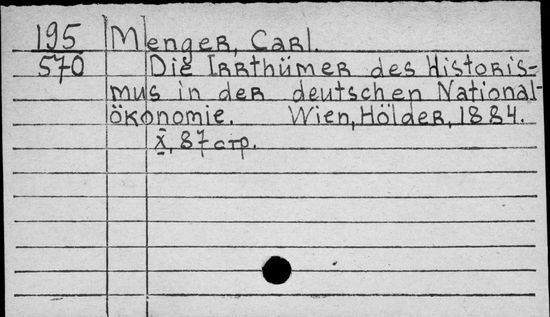 195 Menger, Carl.
570 Die Irrthümer des Historis=
mus in der deutschen National-
ökonomie. Wien, Hölder, 1884.
X, 87 стр.